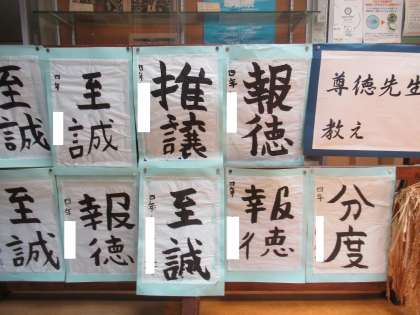 至誠
四年
至誠
四年
推譲
四年
報徳
尊徳先生
教え
至誠
四年
報徳
四年
至誠
四年
報徳
四年
分度